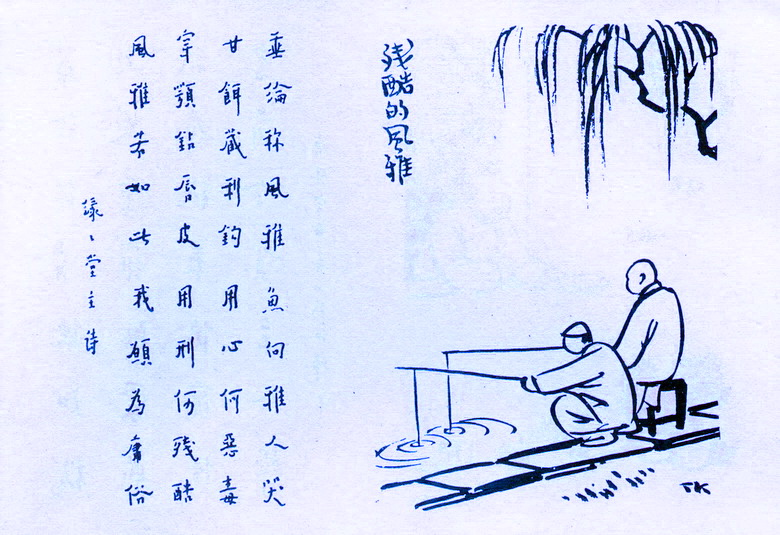 残酷的风雅
垂綸称風雅 魚向雅人哭
甘餌藏利鈎 用心何惡毒
穿顎鉆唇皮 用刑何殘酷
風雅若如此 我願為庸俗
緣々堂主詩
TK